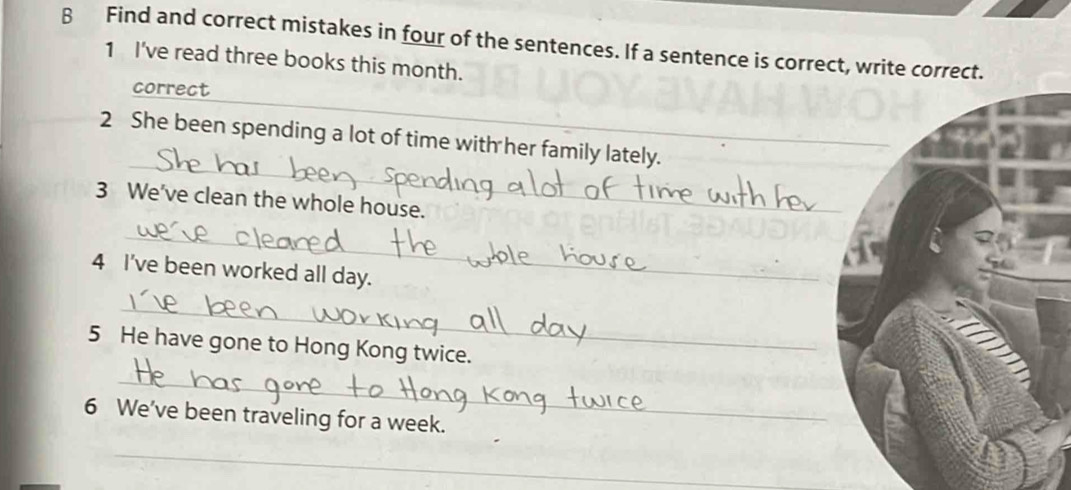 B Find and correct mistakes in four of the sentences. If a sentence is correct, write correct.
1 I've read three books this month.
correct
2 She been spending a lot of time with her family lately.
She has been spending a lot of time with her
3 We've clean the whole house.
we've cleaned the whole house
4 I've been worked all day.
I've been working all day
5 He have gone to Hong Kong twice.
He has gone to Hong Kong twice
6 We've been traveling for a week.